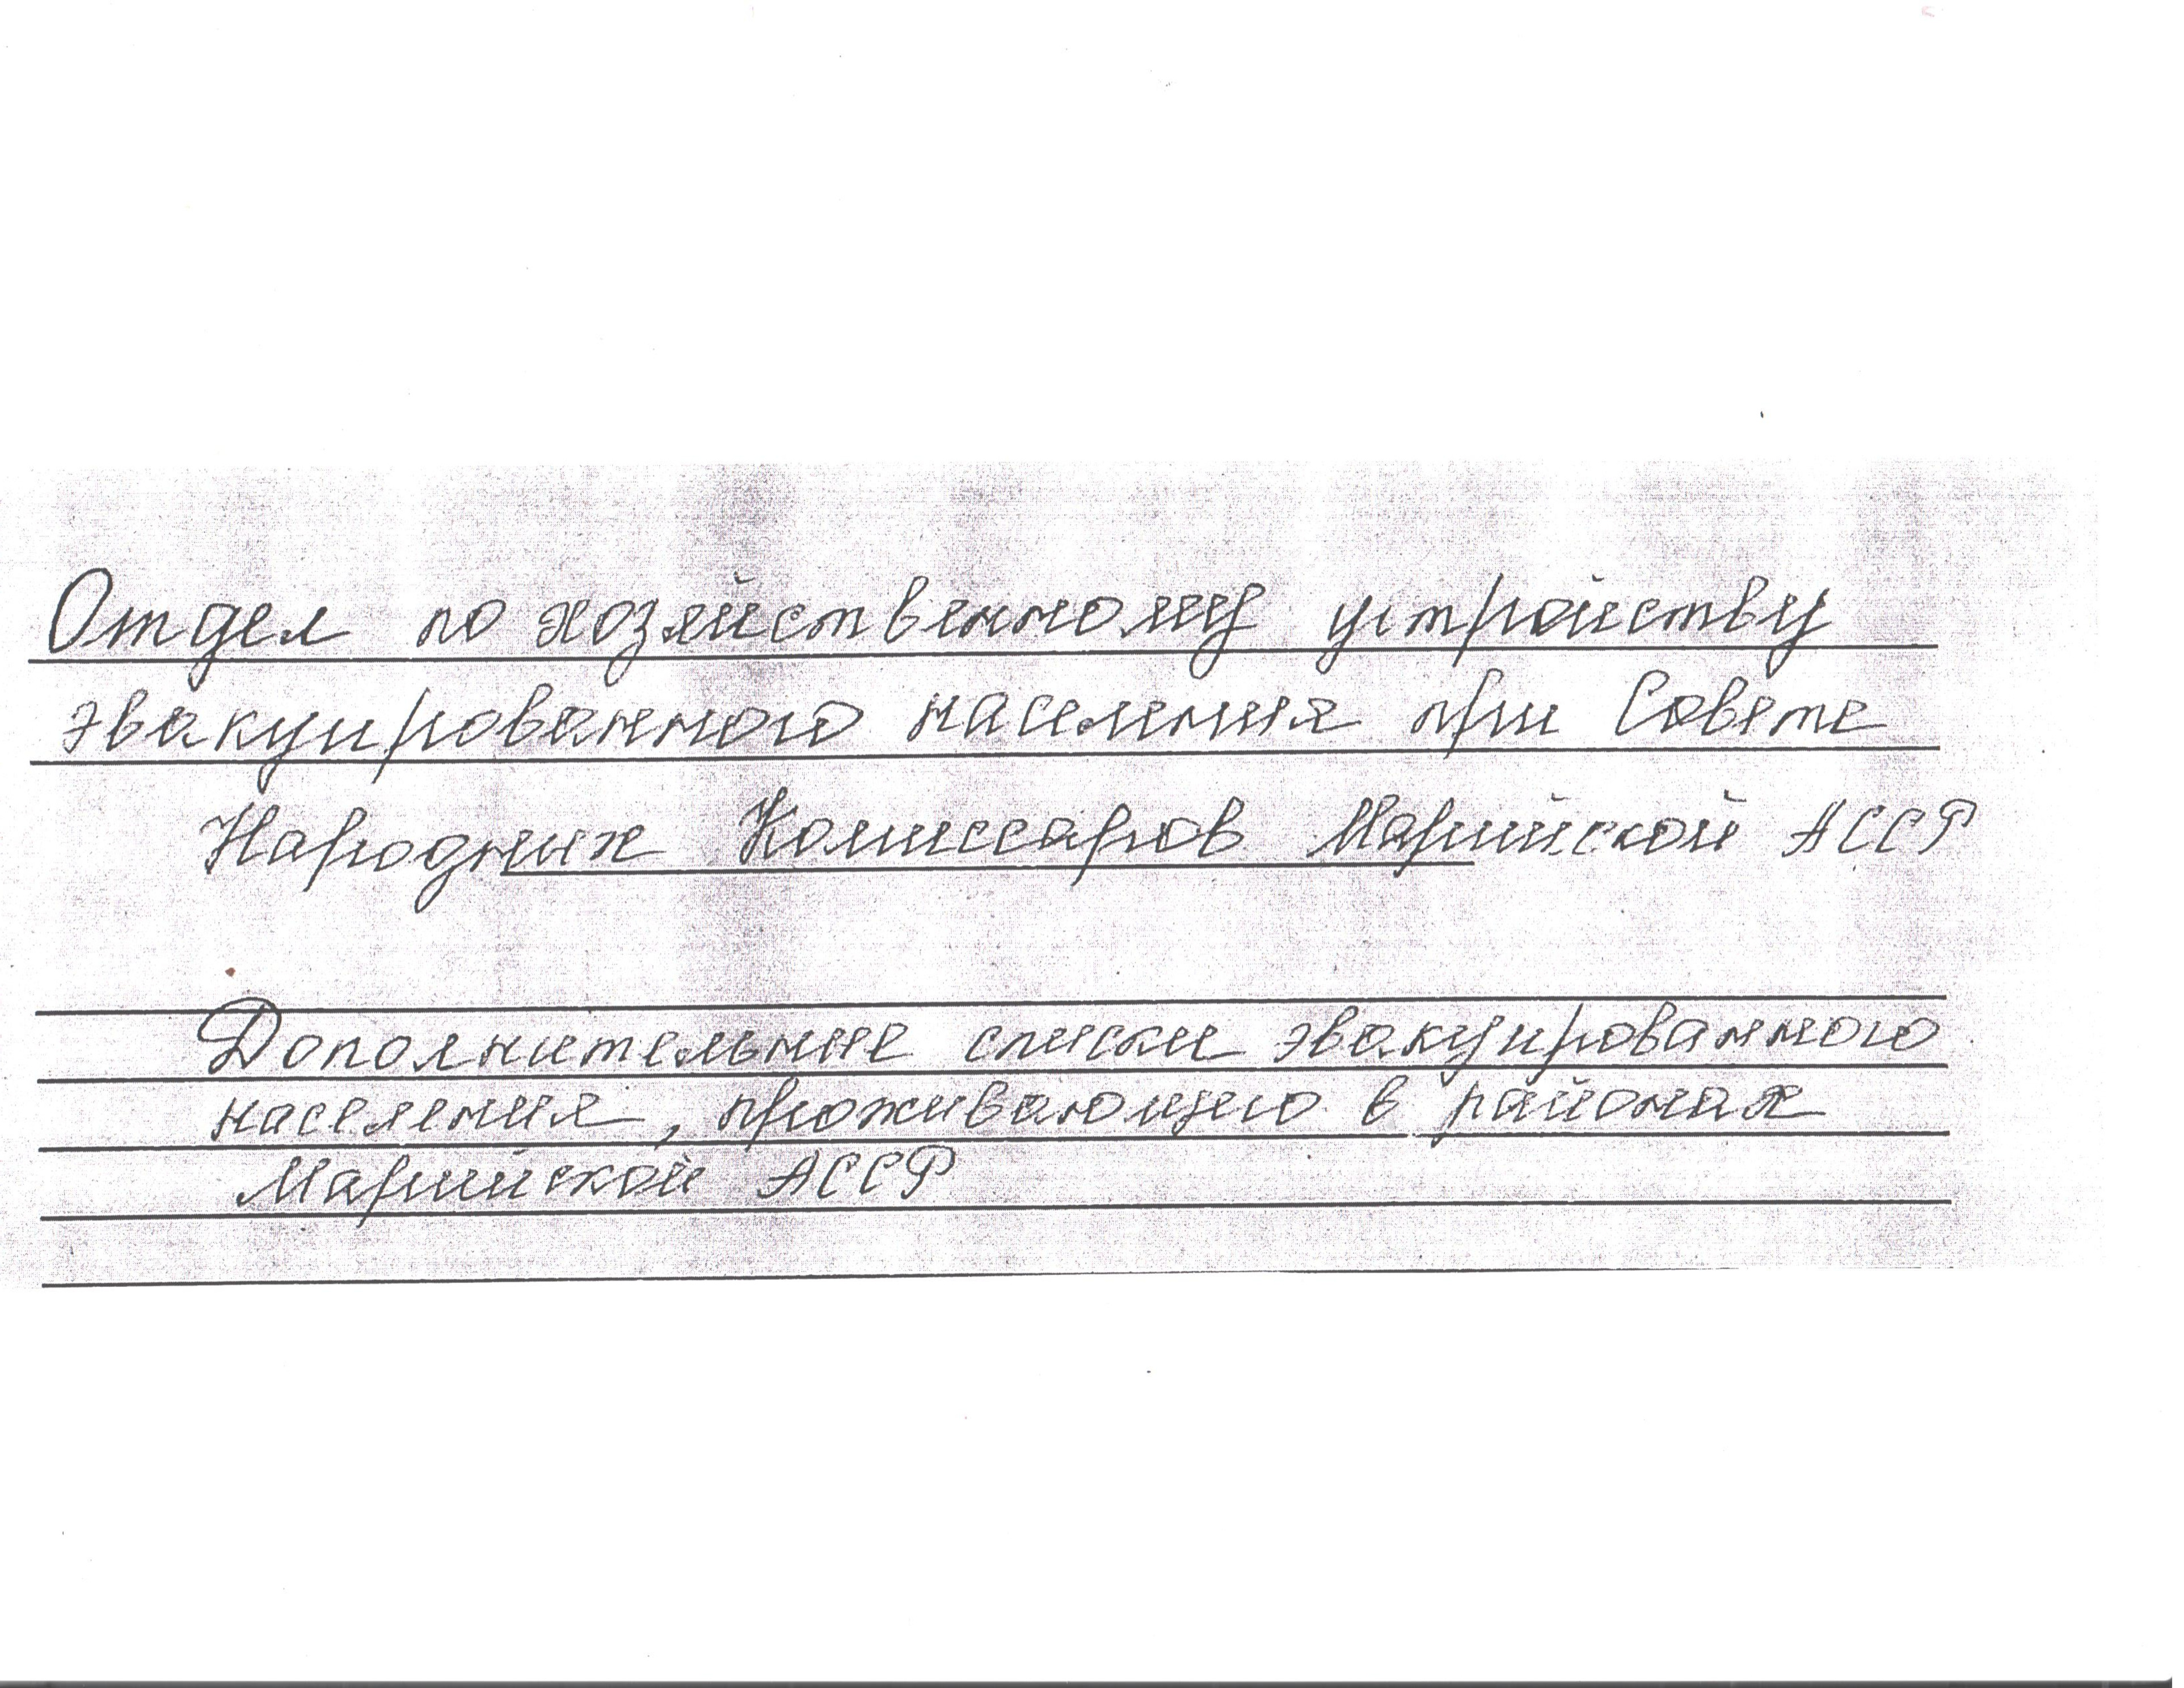 Отдел по хозяйственному устройству
эвакуированного населения при Совете
Народных Комиссаров Марийской АССР
Дополнительные списки эвакуированного
населения, проживающего в районах
Марийской АССР